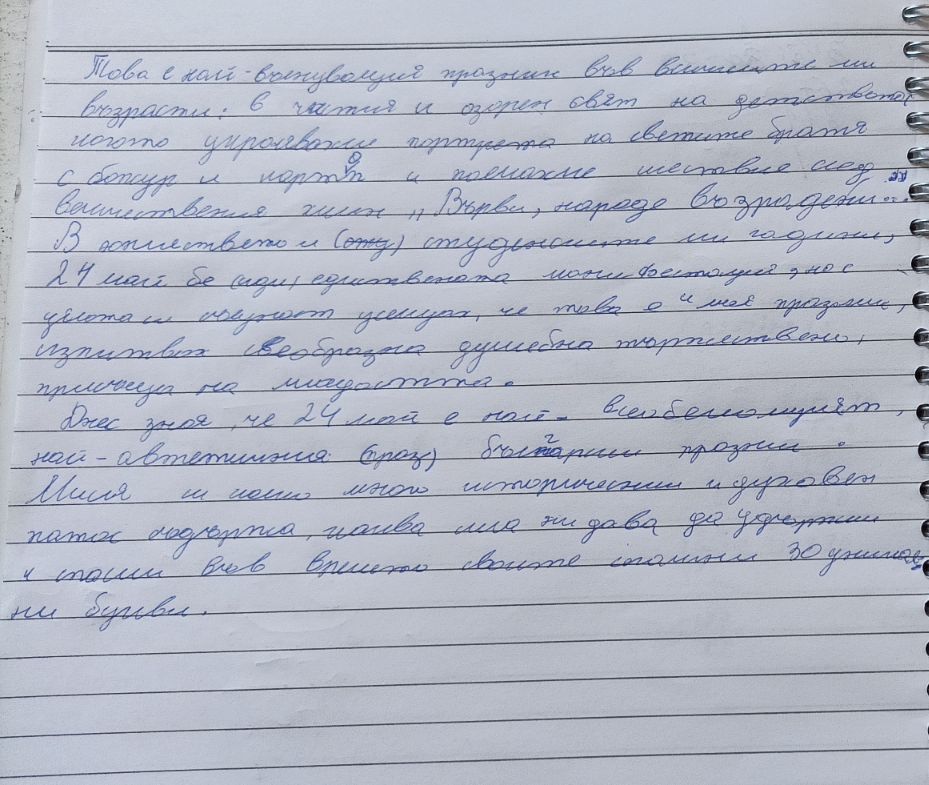 Това е най-вълнуващия празник във всичките ми
възрасти. В чистия и озорен свят на детството,
когато украсявахме портрета на светите братя
с божур и карти и поемахме шествие след
величествения химн „Върви, народе възродени...
В юношеството и (сту) студентските ми години,
24 май бе (еди) единствената манифестация, на с
цялата си същност усещах, че това е и моя празник,
изпитвах своеобразна душевна тържественост,
прилична на младостта.
Днес зная, че 24 май е най-всеобемащият,
най-автетичния (праз) български празник.
Мисля си колко много исторически и духовен
патос съдържа, каква сила ни дава да удържим
и спасим във времето своите спомени 30 уникал-
ни букви.